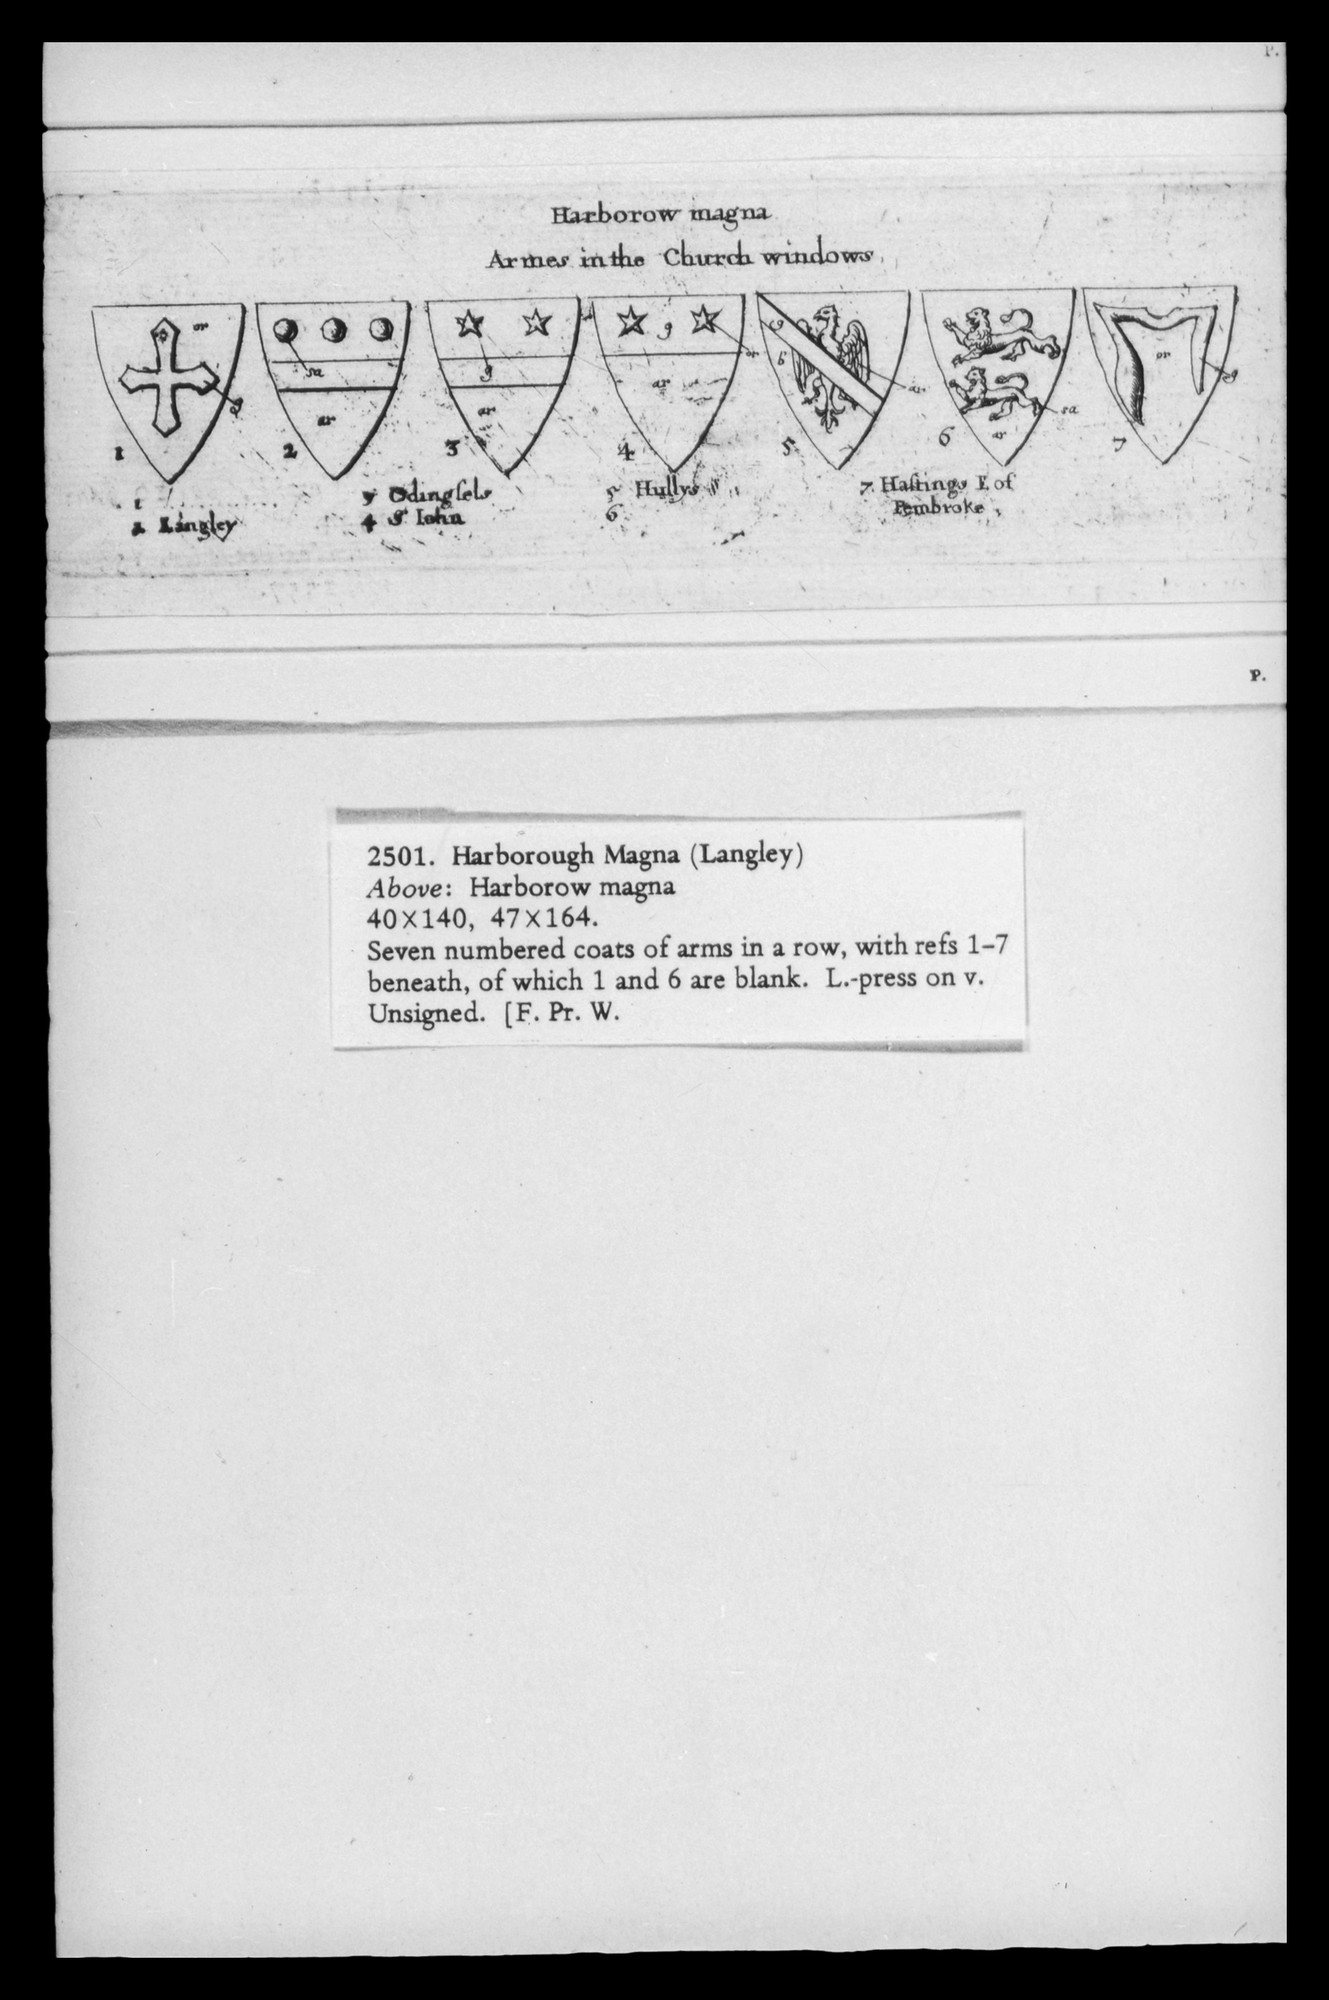 P.
Harborow magna
Armes in the Church windows
or
g
1
sa
ar
2
g
ar
3
g
or
ar
4
g
b
ar
5
sa
or
6
or
g
7
1
2 Langley
3 Odingsels
4 St Iohn
5 Hullys
6
7 Haſtings E of
Pembroke
P.
2501. Harborough Magna (Langley)
Above: Harborow magna
40×140, 47×164.
Seven numbered coats of arms in a row, with refs 1–7
beneath, of which 1 and 6 are blank. L.-press on v.
Unsigned. [F. Pr. W.